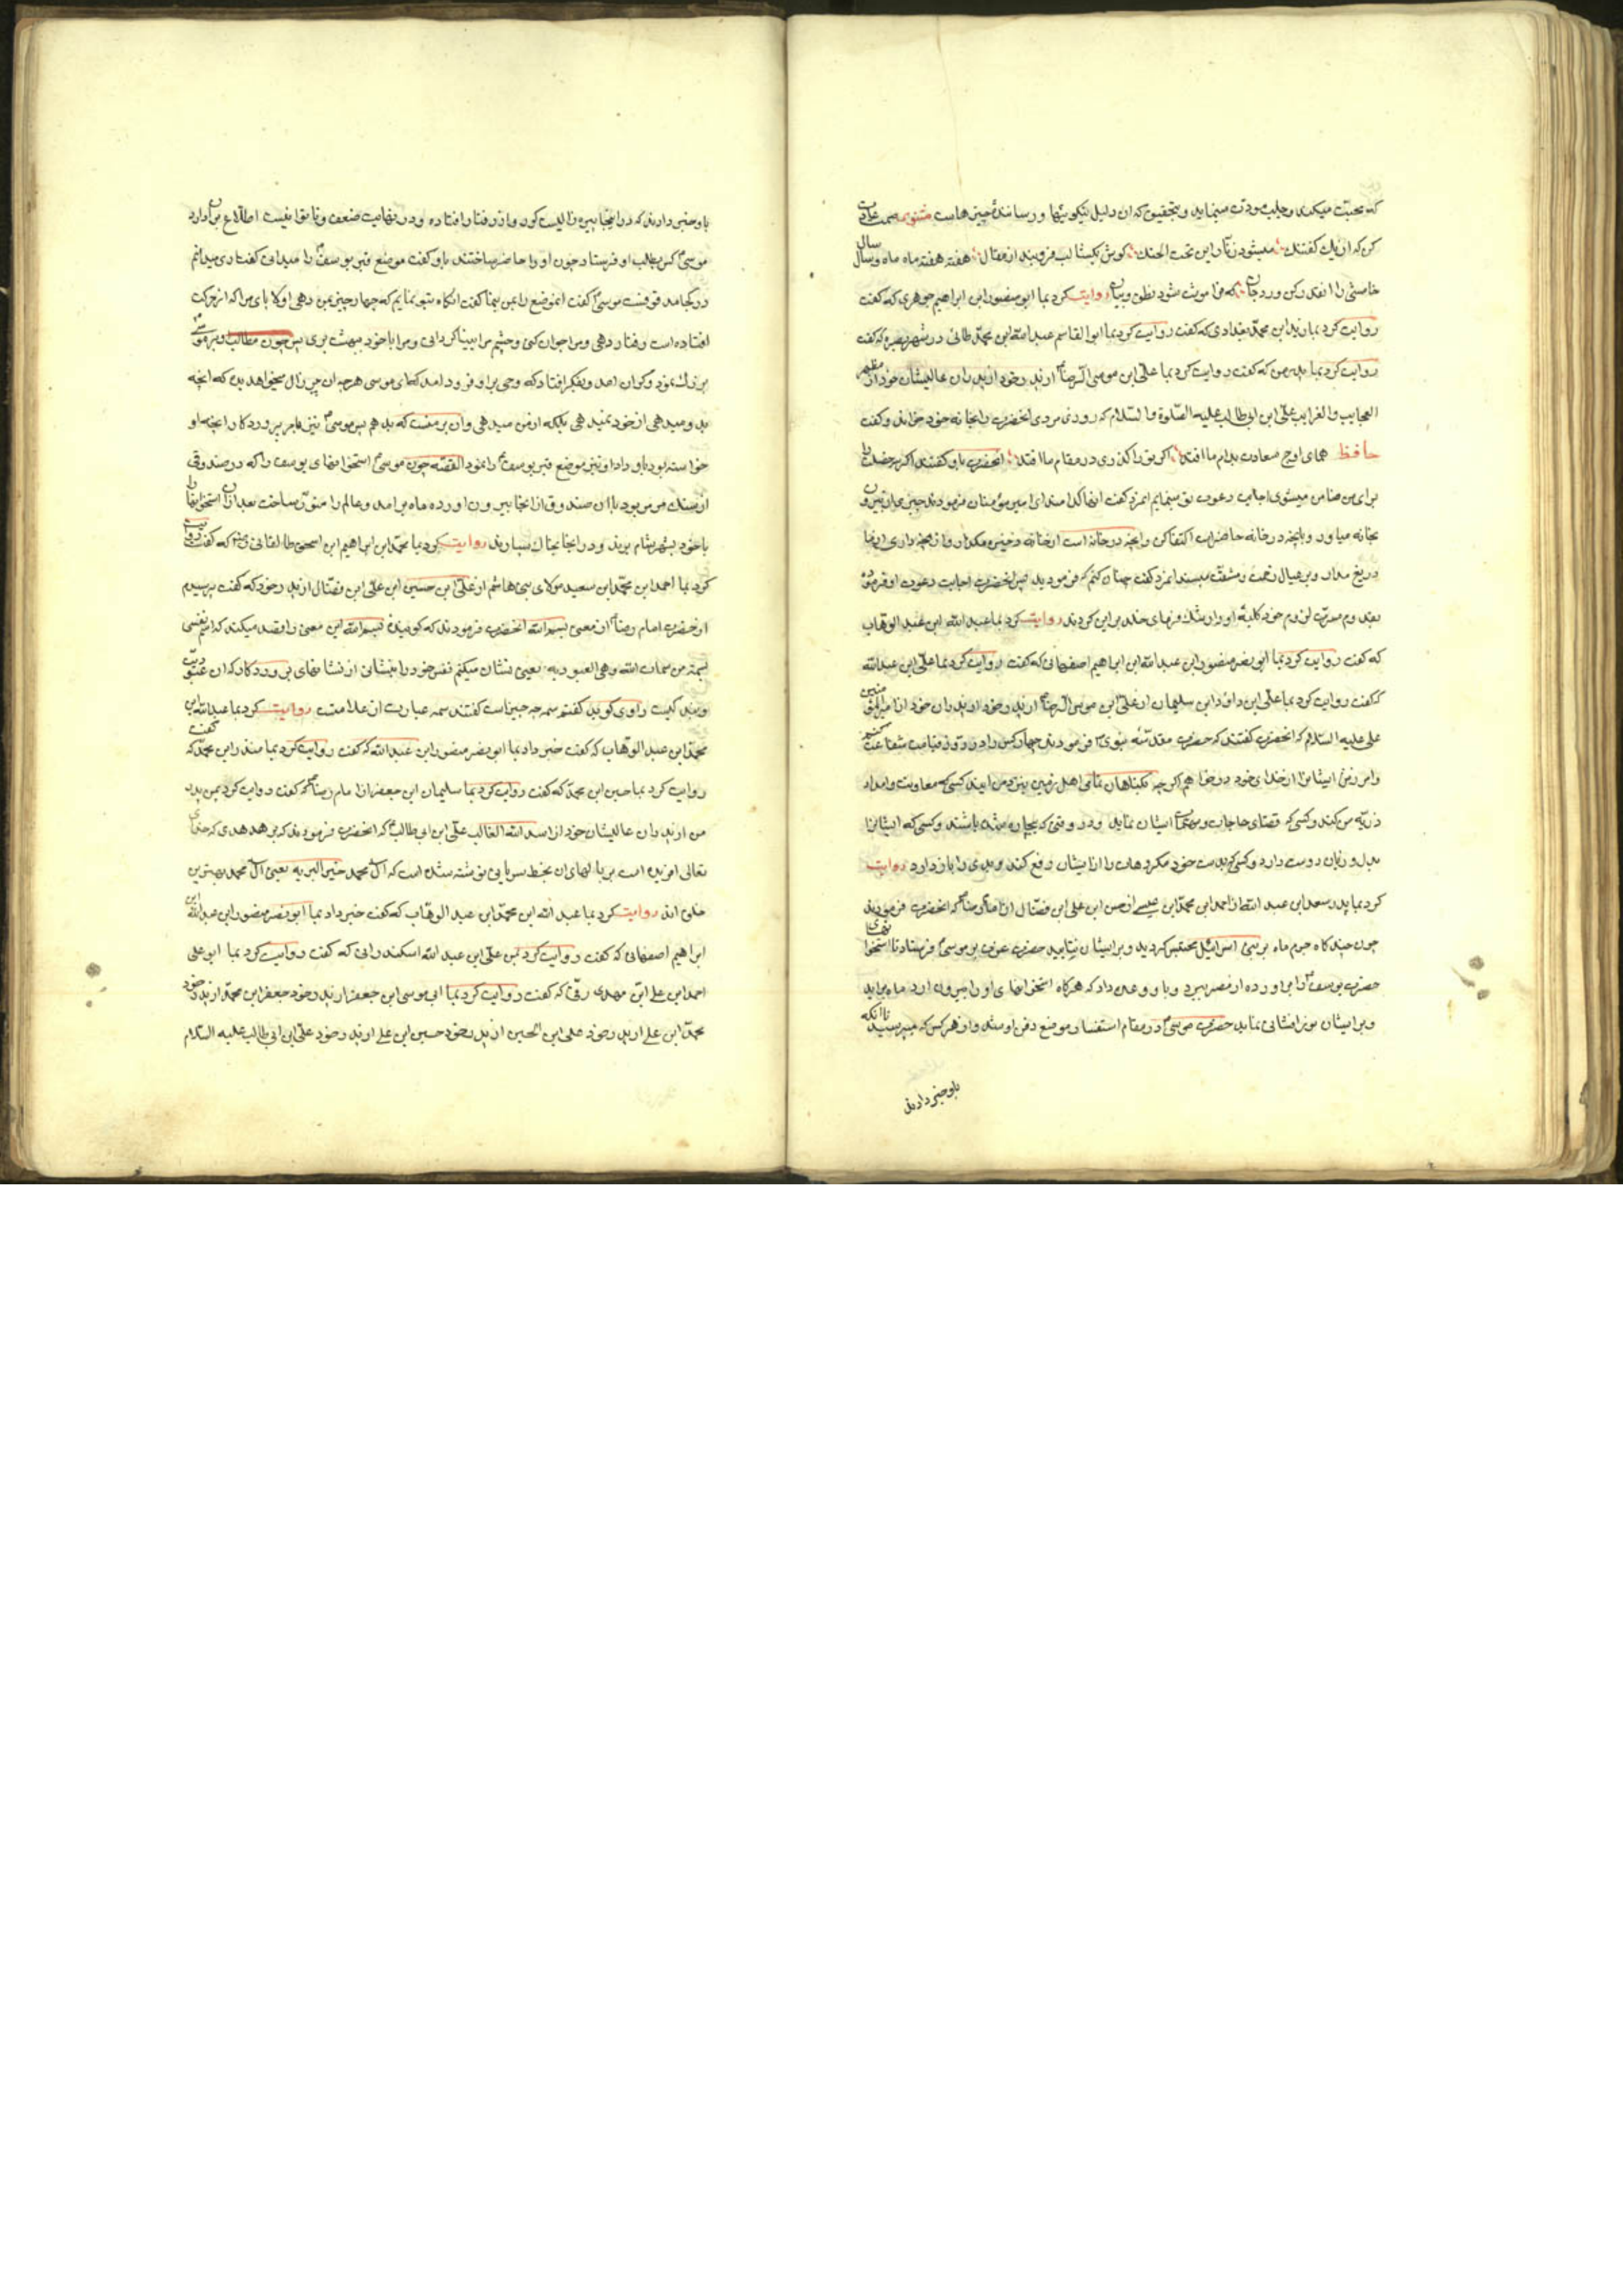 که محبّت میکند و جلب مودّت مینماید و بتحقیق که ان دلیل نیکوییها و رساننده چیزهاست مثنویه صمت عادت
کن که از یک گفتنک میشود زنار این تحت الحنک گوش بگشا لب فرو بند از مقال هفته هفته ماه ماه و سال سال
خامشی را کن ورد جان که فراموشت شود نطق و بیان روایت کرد بما ابو منصور ابن ابراهیم جوهری که گفت
روایت کرد بما زید ابن محمّد بغدادی که گفت روایت کرد بما ابوالقاسم عبد الله ابن محمّد طائی در شهر بصره که گفت
روایت کرد بما پدر من که گفت روایت کرد بما علی ابن موسی الرضا از پدر خود از پدران عالیشان خود از مظهر
العجایب والغرایب علی ابن ابی طالب علیه الصّلوة والسّلام که روزی مردی انحضرت را بخانه خود خواند و گفت
حافظ همای اوج سعادت بدام ما افتد اگر تو را گذری در مقام ما افتد انحضرت باو گفتند اگر سه خصلت را
برای من ضامن میشوی اجابت دعوت تو مینمایم انمرد گفت انها کدامند ای امیر مؤمنان فرمودند چیزی از بیرون
بخانه میاور و بانچه در خانه حاضر است اکتفا کن و انچه در خانه است ذخیره مگذار و از هر چه داری از ما
دریغ مدار و بر عیال زحمت و مشقّت مپسند انمرد گفت چنان کنم که فرمودید پس انحضرت اجابت دعوت او فرموده
بقدوم میمنت لزوم خود کلبه او را رشک فرمای خلد برین کردند روایت کرد بما عبد الله ابن عبد الوهّاب
که گفت روایت کرد بما ابو نصر منصور ابن عبد الله ابن ابراهیم اصفهانی که گفت روایت کرد بما علی ابن عبد الله
که گفت روایت کرد بما علی ابن داود ابن سلیمان از علی ابن موسی الرضا از پدر خود از پدران خود از امیر المؤمنین
علی علیه السّلام که انحضرت گفتند که حضرت مقدّسه نبوی فرمودند چهار کس را در روز قیامت شفاعت کنم
و امرزش ایشانرا از خدای خود در خواهم اگر چه بگناهان تمامی اهل زمین بنزد من ایند کسی که معاونت و امداد
ذریّه من کند و کسی که قضای حاجات و مهمّات ایشان نماید در وقتی که بیچاره شده باشند و کسی که ایشانرا
بدل و زبان دوست دارد و کسی که بدست خود مکروهات را از ایشان رفع کند و بدی را باز دارد روایت
کرد بما پدر سعد ابن عبد الله از احمد ابن محمّد ابن عیسی از حسن ابن علی ابن فضّال از امام رضا که انحضرت فرمودند
چون چند گاه جرم ماه بر بنی اسرائیل محتبس گردید و بر ایشان نتابید حضرت عزت بر موسی فرستاد تا استخوانهای
حضرت یوسف را براورده از مصر ببرد و باو وعده داد که هر گاه استخوانهای او را بیرون ارد ماه براید
و بر ایشان نور افشانی نماید حضرت موسی در مقام استفسار موضع دفن او شد و از هر کس که میپرسید تا انکه
باو خبر دادند
باو خبر دادند که در اینجا پیره زالیست کور و از رفتار افتاده و در نهایت ضعف و ناتوانیست اطّلاع بران دارد
موسی کس بطلب او فرستاد چون او را حاضر ساختند باو گفت موضع قبر یوسف را میدانی گفت اری میدانم
در کجا مدفونست موسی گفت انموضع را بمن بنما گفت انگاه بتو نمایم که چهار چیز بمن دهی اوّلا پای مرا که از حرکت
افتاده است رفتار دهی و مرا جوان کنی و چشم مرا بینا گردانی و مرا با خود ببهشت بری پس چون مطالب او بر موسی
بزرگ نمود و گران امد و بفکر افتاد که وحی بر او فرود امد که ای موسی هر چه ان پیر زال میخواهد بده که انچه
بدو میدهی از خود نمیدهی بلکه از من میدهی وان بر منست که بدهم پس موسی نیز بامر پروردگار انچه او
خواسته بود باو داد او نیز موضع قبر یوسف را نمود القصّه چون موسی استخوانهای یوسف را که در صندوقی
از سنگ مرمر بود با ان صندوق از انجا بیرون اورده ماه برامد و عالم را منوّر ساخت بعد ازان استخوانها را
با خود بشهر شام بردند و در انجا بخاک سپارند روایت کرد بما محمّد ابن ابراهیم ابن اسحق طالقانی که گفت روایت
کرد بما احمد ابن محمّد ابن سعید مولای بنی هاشم از علی ابن حسین ابن علی ابن فضّال از پدر خود که گفت پرسیدم
از حضرت امام رضا از معنی بسم الله انحضرت فرمودند که گوینده بسم الله این معنی را قصد میکند که اسم نفسی
بسمة من سمات الله وهی العبودیه یعنی نشان میکنم نفس خود را بنشانی از نشانهای پروردگار که ان عبودیّت
و بندگیست راوی گوید گفتم سمه چه چیز است گفتند سمه عبارت از علامت روایت کرد بما عبد الله ابن
محمّد ابن عبد الوهّاب که گفت خبر داد بما ابو نصر منصور ابن عبد الله که گفت روایت کرد بما منذر ابن محمّد که گفت
روایت کرد بما حسین ابن محمّد که گفت روایت کرد بما سلیمان ابن جعفر از امام رضا که گفت روایت کرد بمن پدر
من از پدران عالیشان خود از اسد الله الغالب علی ابن ابی طالب که انحضرت فرمودند که هر هدهدی که خدای
تعالی افریده است بر بالهای ان بخط سریانی نوشته شده است که ال محمد خیر البریه یعنی ال محمد بهترین
خلق اند روایت کرد بما عبد الله ابن محمّد ابن عبد الوهّاب که گفت خبر داد بما ابو نصر منصور ابن عبد الله ابن
ابراهیم اصفهانی که گفت روایت کرد بمن علی ابن عبد الله اسکندرانی که گفت روایت کرد بما ابو علی
احمد ابن علی ابن مهدی رقی که گفت روایت کرد بما ابی موسی ابن جعفر از پدر خود جعفر ابن محمّد از پدر خود
محمّد ابن علی از پدر خود علی ابن الحسین از پدر خود حسین ابن علی از پدر خود علی ابن ابی طالب علیه السّلام